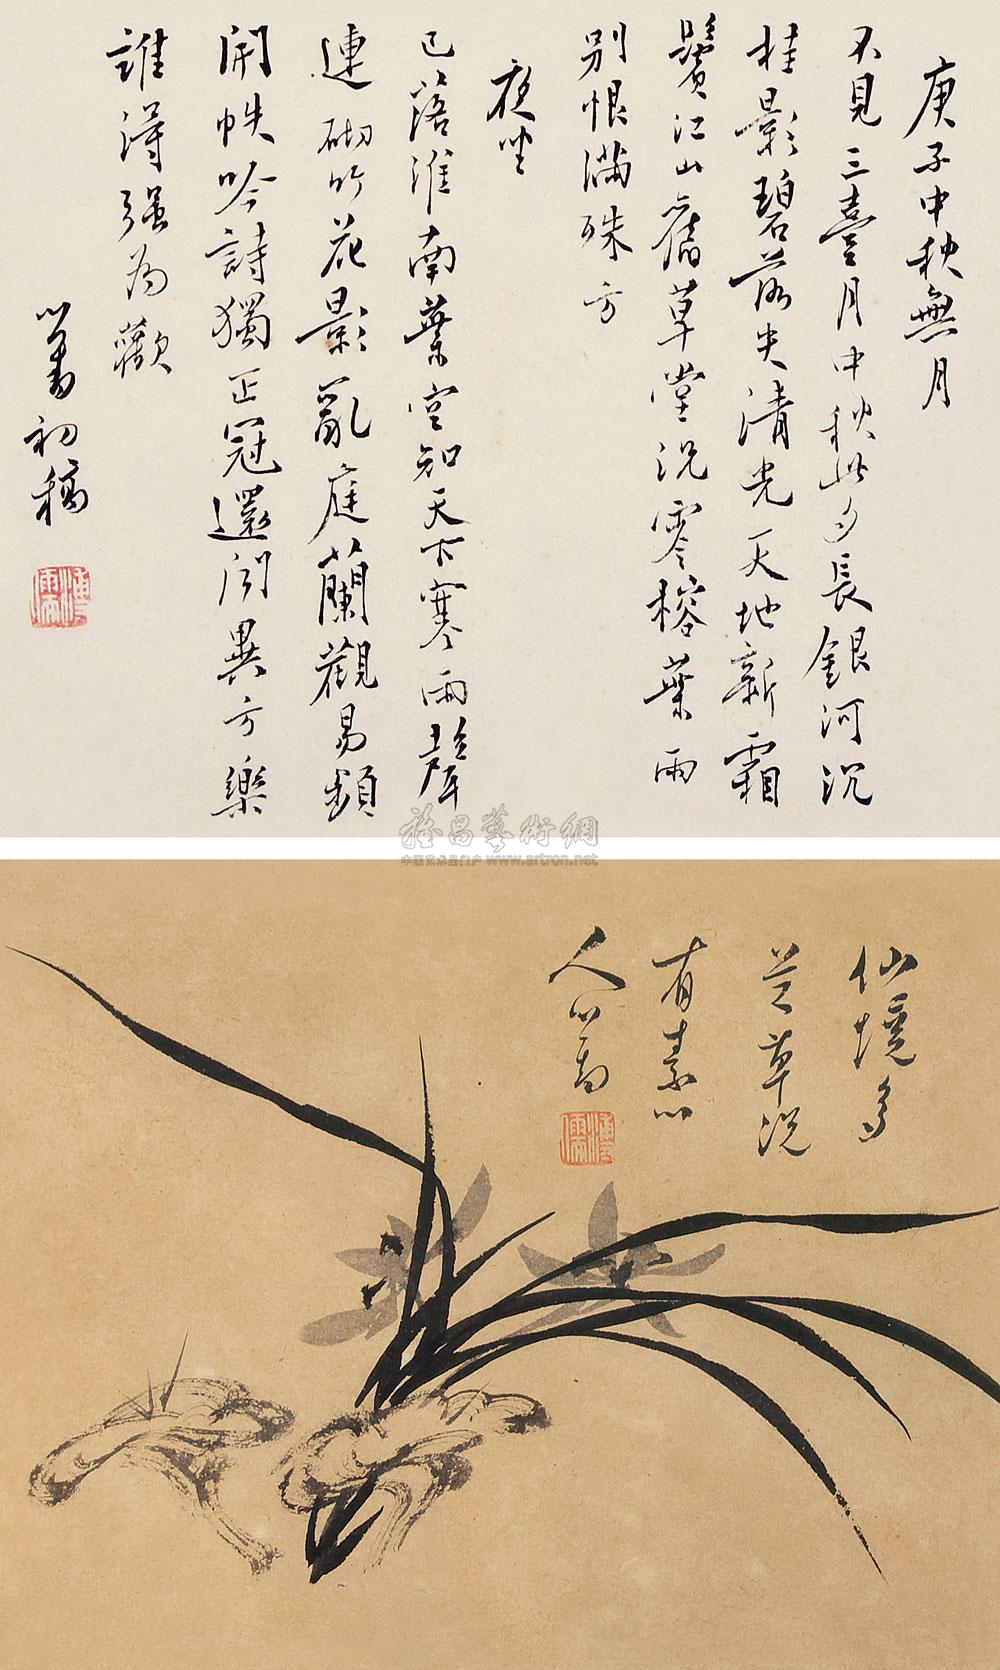 庚子中秋無月
不見三臺月中秋此夕長銀河沉
桂影碧落失清光天地新霜
鬢江山舊草堂況零榕葉雨
別恨滿殊方
夜坐
已落淮南葉空知天下寒雨聲
連砌竹花影亂庭蘭觀易頻
開帙吟詩獨正冠還聞異方樂
誰得強為歡
心畬初稿
溥儒
雅昌藝術網
中国艺术品门户 www.artron.net
仙境多
芝草況
有素心
人心畬
溥儒